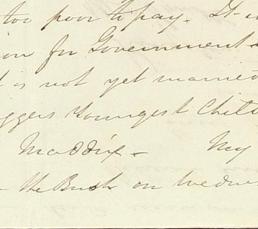 too poor to pay. It
ion for Government
is not yet married
ggers Youngest Chil
Maddix - My
the Bush on Wedn